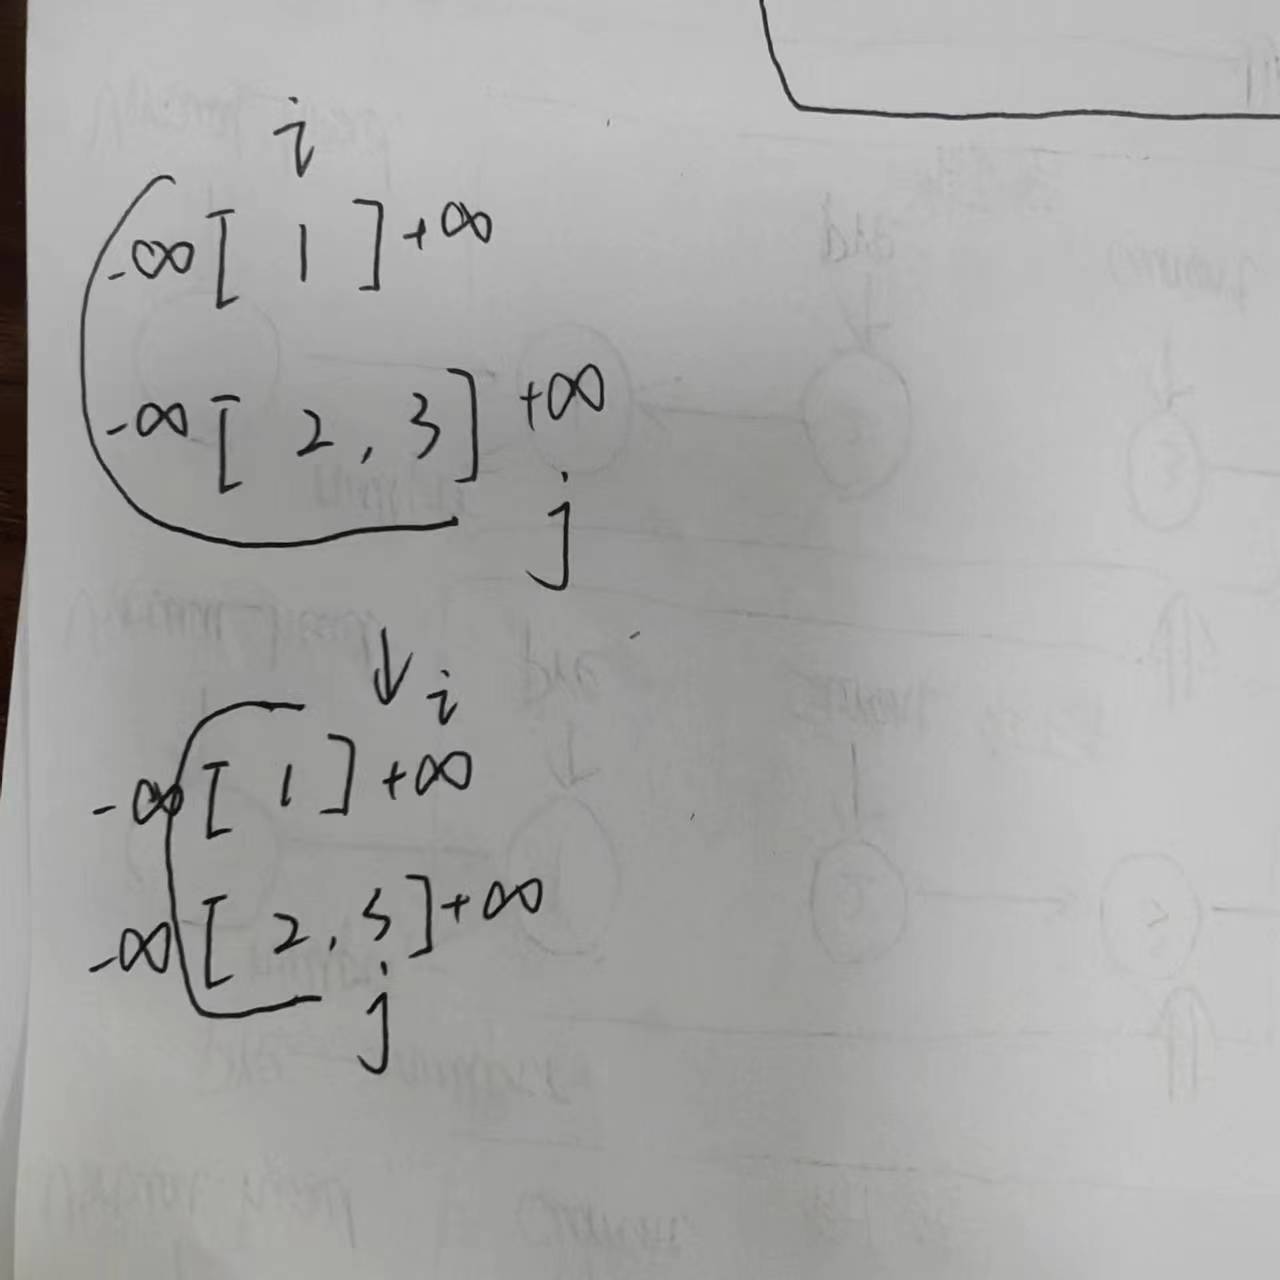 i
-∞ [ 1 ] +∞
-∞ [ 2 , 3 ] +∞
j
↓ i
-∞ [ 1 ] +∞
-∞ [ 2 , 3 ] +∞
j